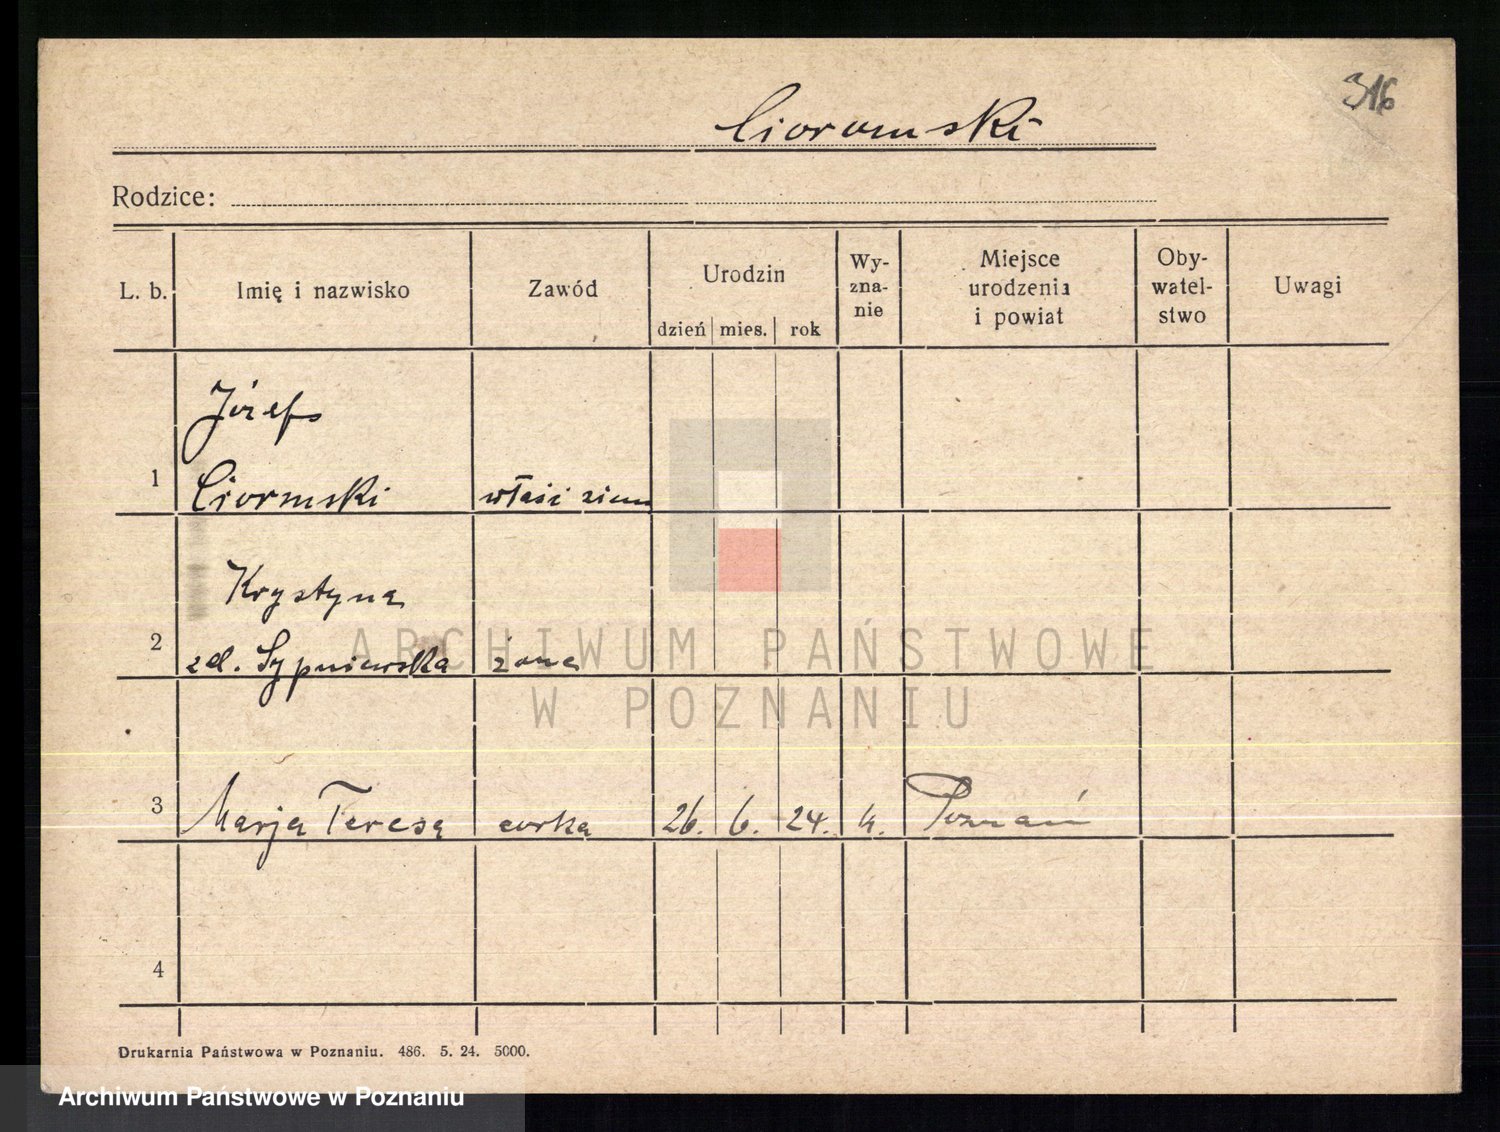 316
Cioromski
Rodzice:
L. b. Imię i nazwisko Zawód Urodzin dzień mies. rok Wy-zna-nie Miejsce urodzenia i powiat Oby-watel-stwo Uwagi
Józef
1 Ciormski właść ziem
Krystyna
2 zd. Sypniewska żona
3 Marja Teresa corka 26. 6. 24. k. Poznań
4
Drukarnia Państwowa w Poznaniu. 486. 5. 24. 5000.
ARCHIWUM PAŃSTWOWE
W POZNANIU
Archiwum Państwowe w Poznaniu